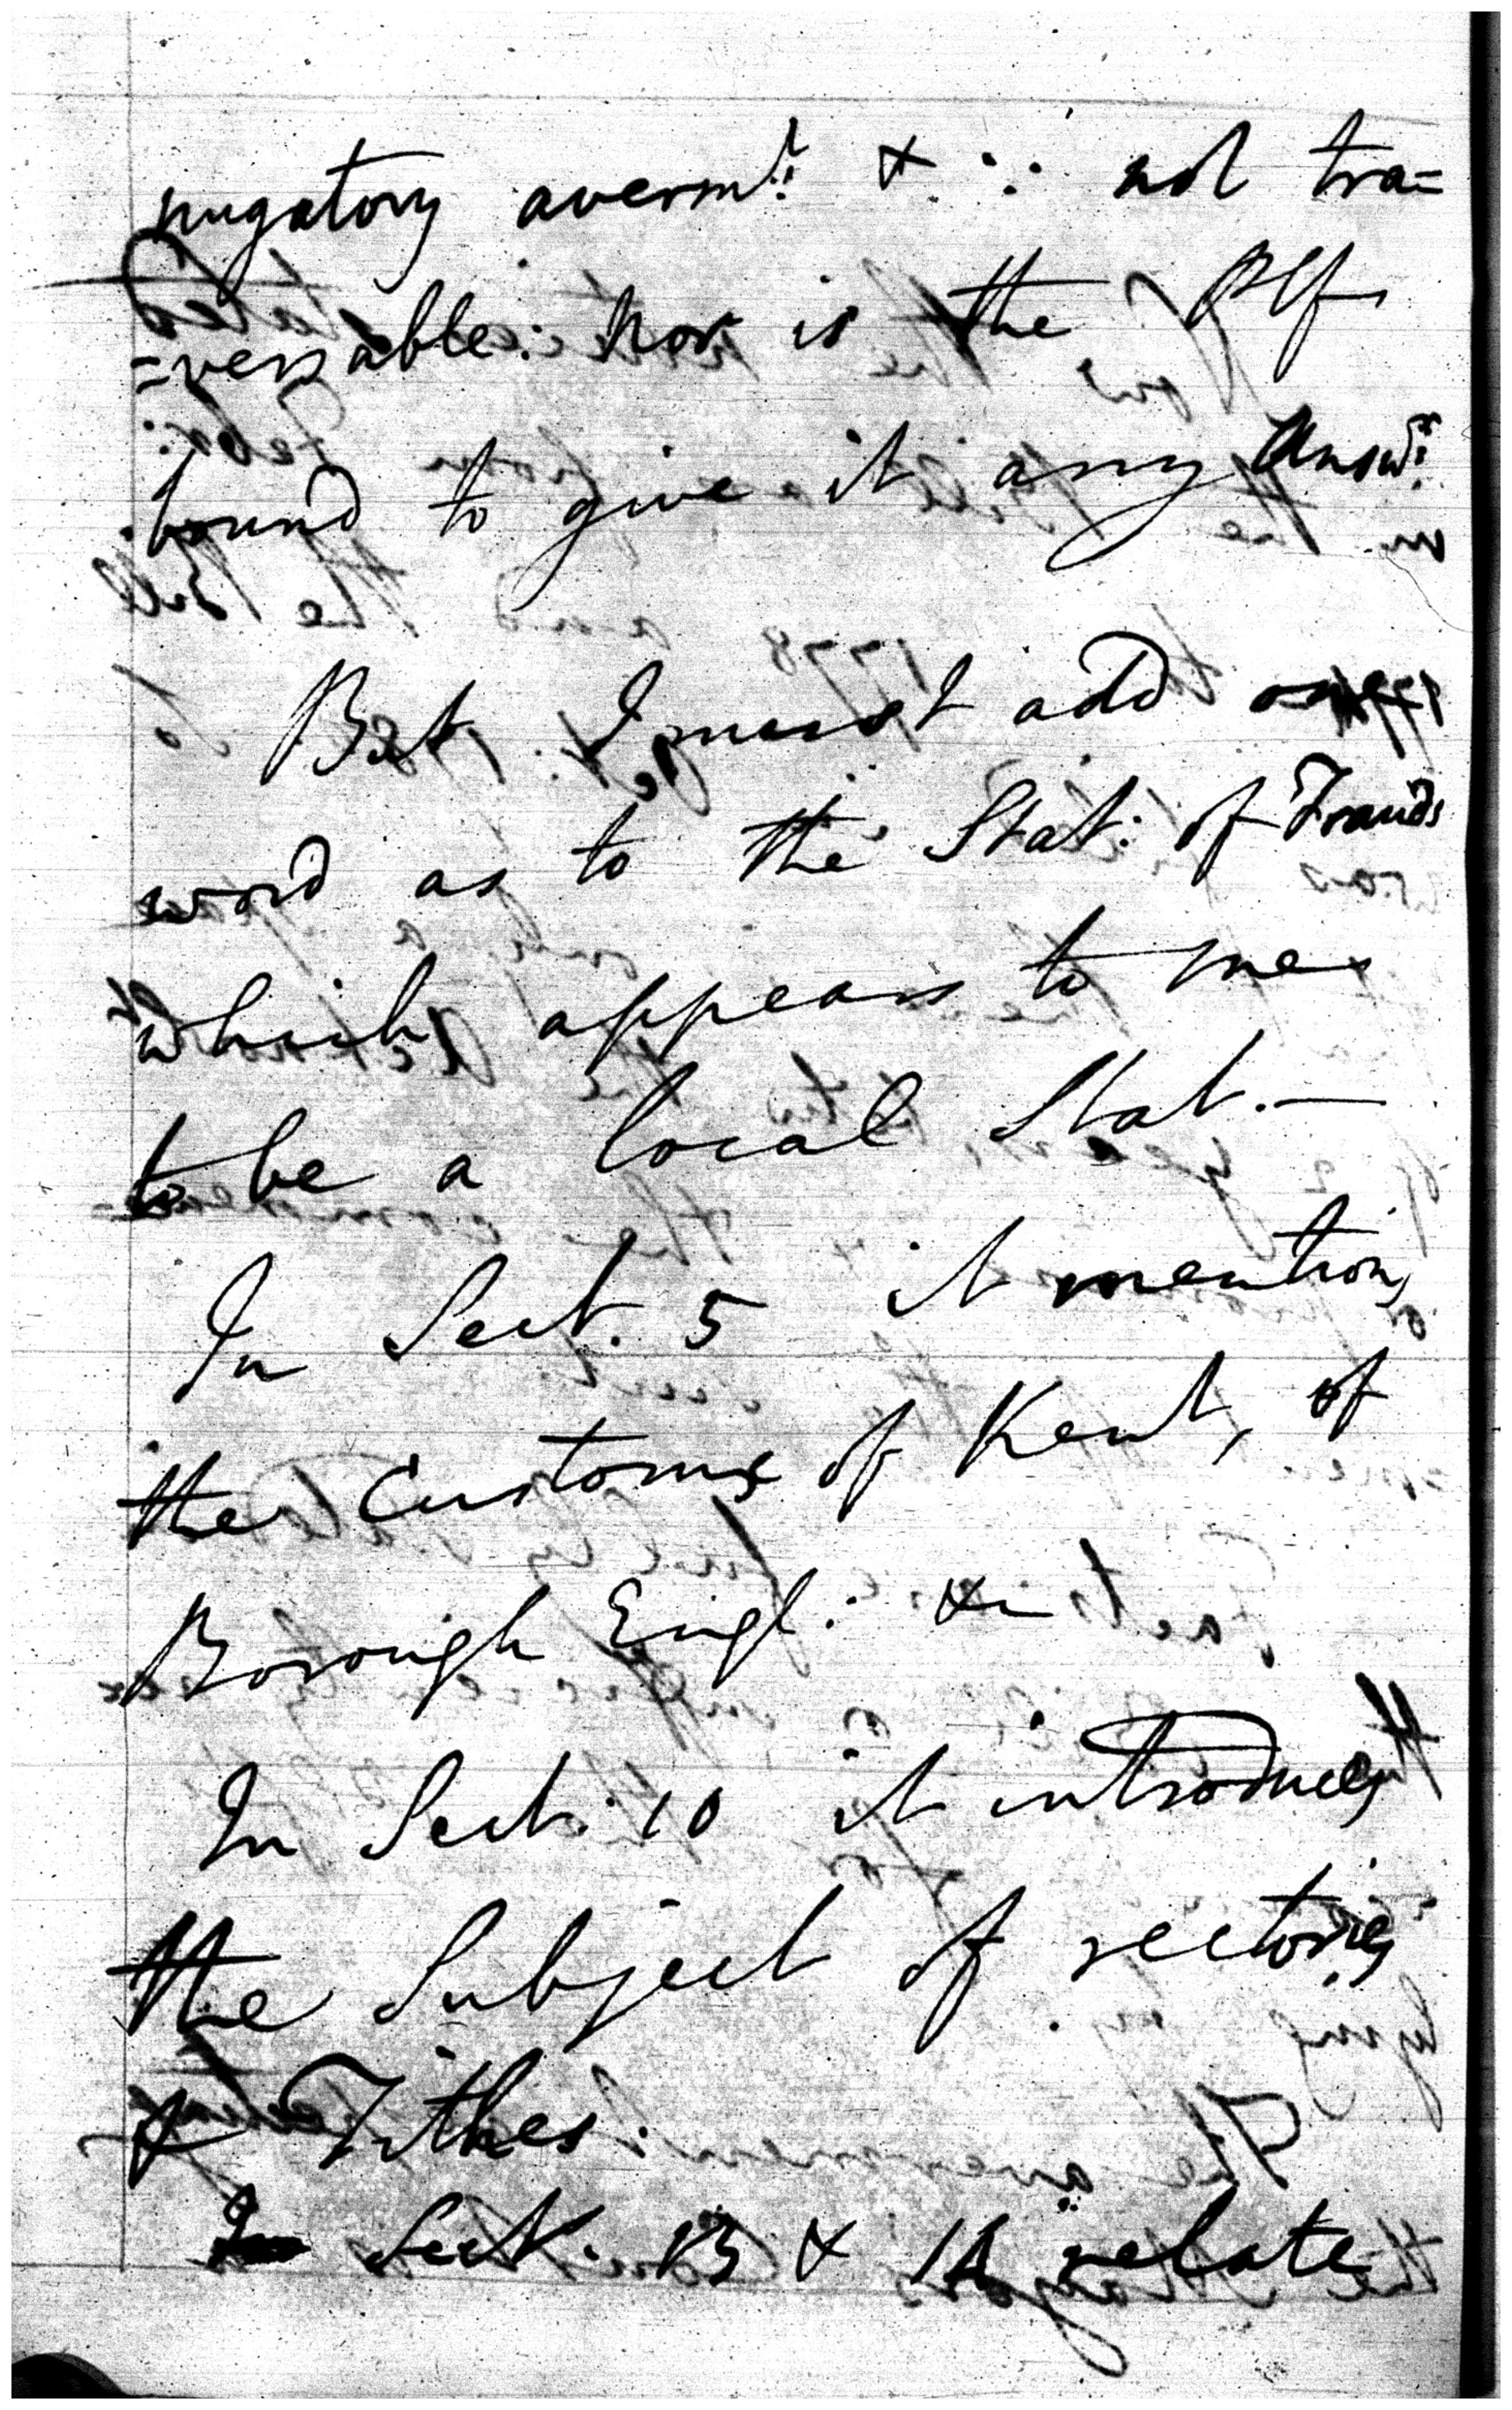 nugatory averm.t & ∴ not tra=
=versable: Nor is the Plf
bound to give it any Answ.r
But I must add one
word as to the Stat: of Frauds
which appears to me
to be a local Stat. —
In Sect. 5 it mentions
the Customs of Kent, of
Borough Engl: &c
In Sect: 10 it introduces
the Subject of rectories
& Tithes.
Sect. 13 & 14 relate